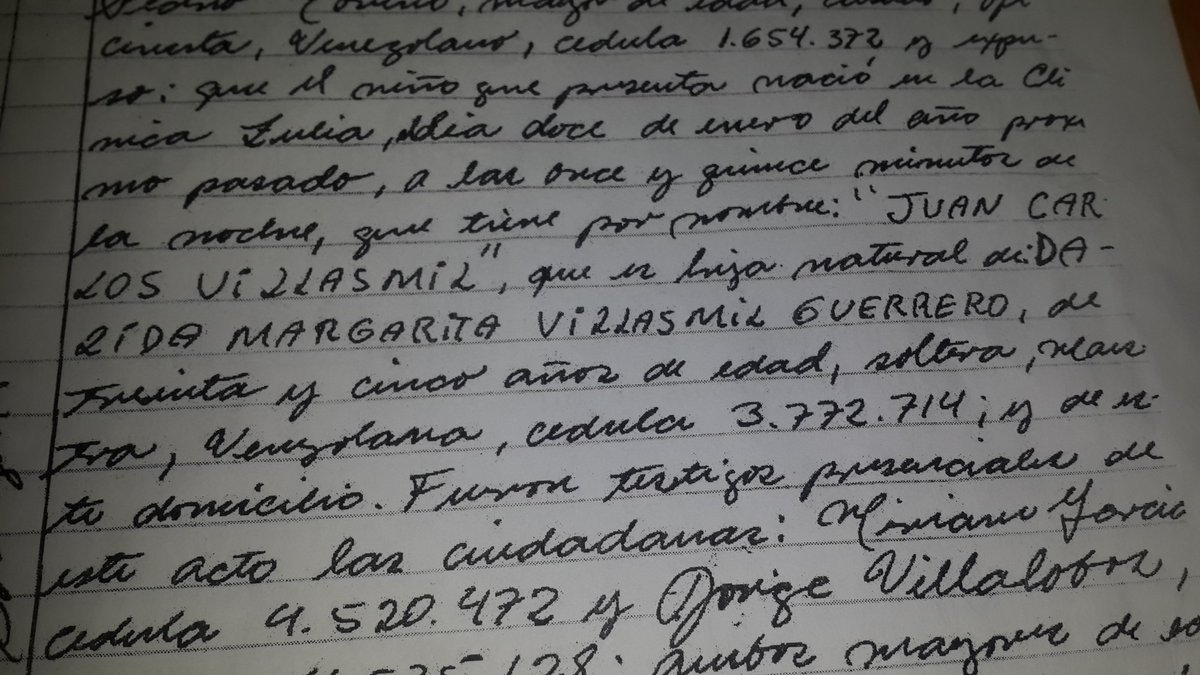 mayor de edad,
cinista, Venezolano, cedula 1.654.372 y expu-
so: que el niño que presenta nació en la Cli
nica Zulia, el dia doce de enero del año proxi
mo pasado, a las once y quince minutos de
la noche, que tiene por nombre: "JUAN CAR
LOS ViLLASMiL", que es hijo natural de: DA-
LiDA MARGARiTA ViLLASMiL GUERRERO, de
treinta y cinco años de edad, soltera, maes
tra, Venezolana, cedula 3.772.714; y de es-
te domicilio. Fueron testigos presenciales de
este acto las ciudadanas: Miriam Garcia
cedula 4.520.472 y Jorge Villalobos,
128; ambos mayores de